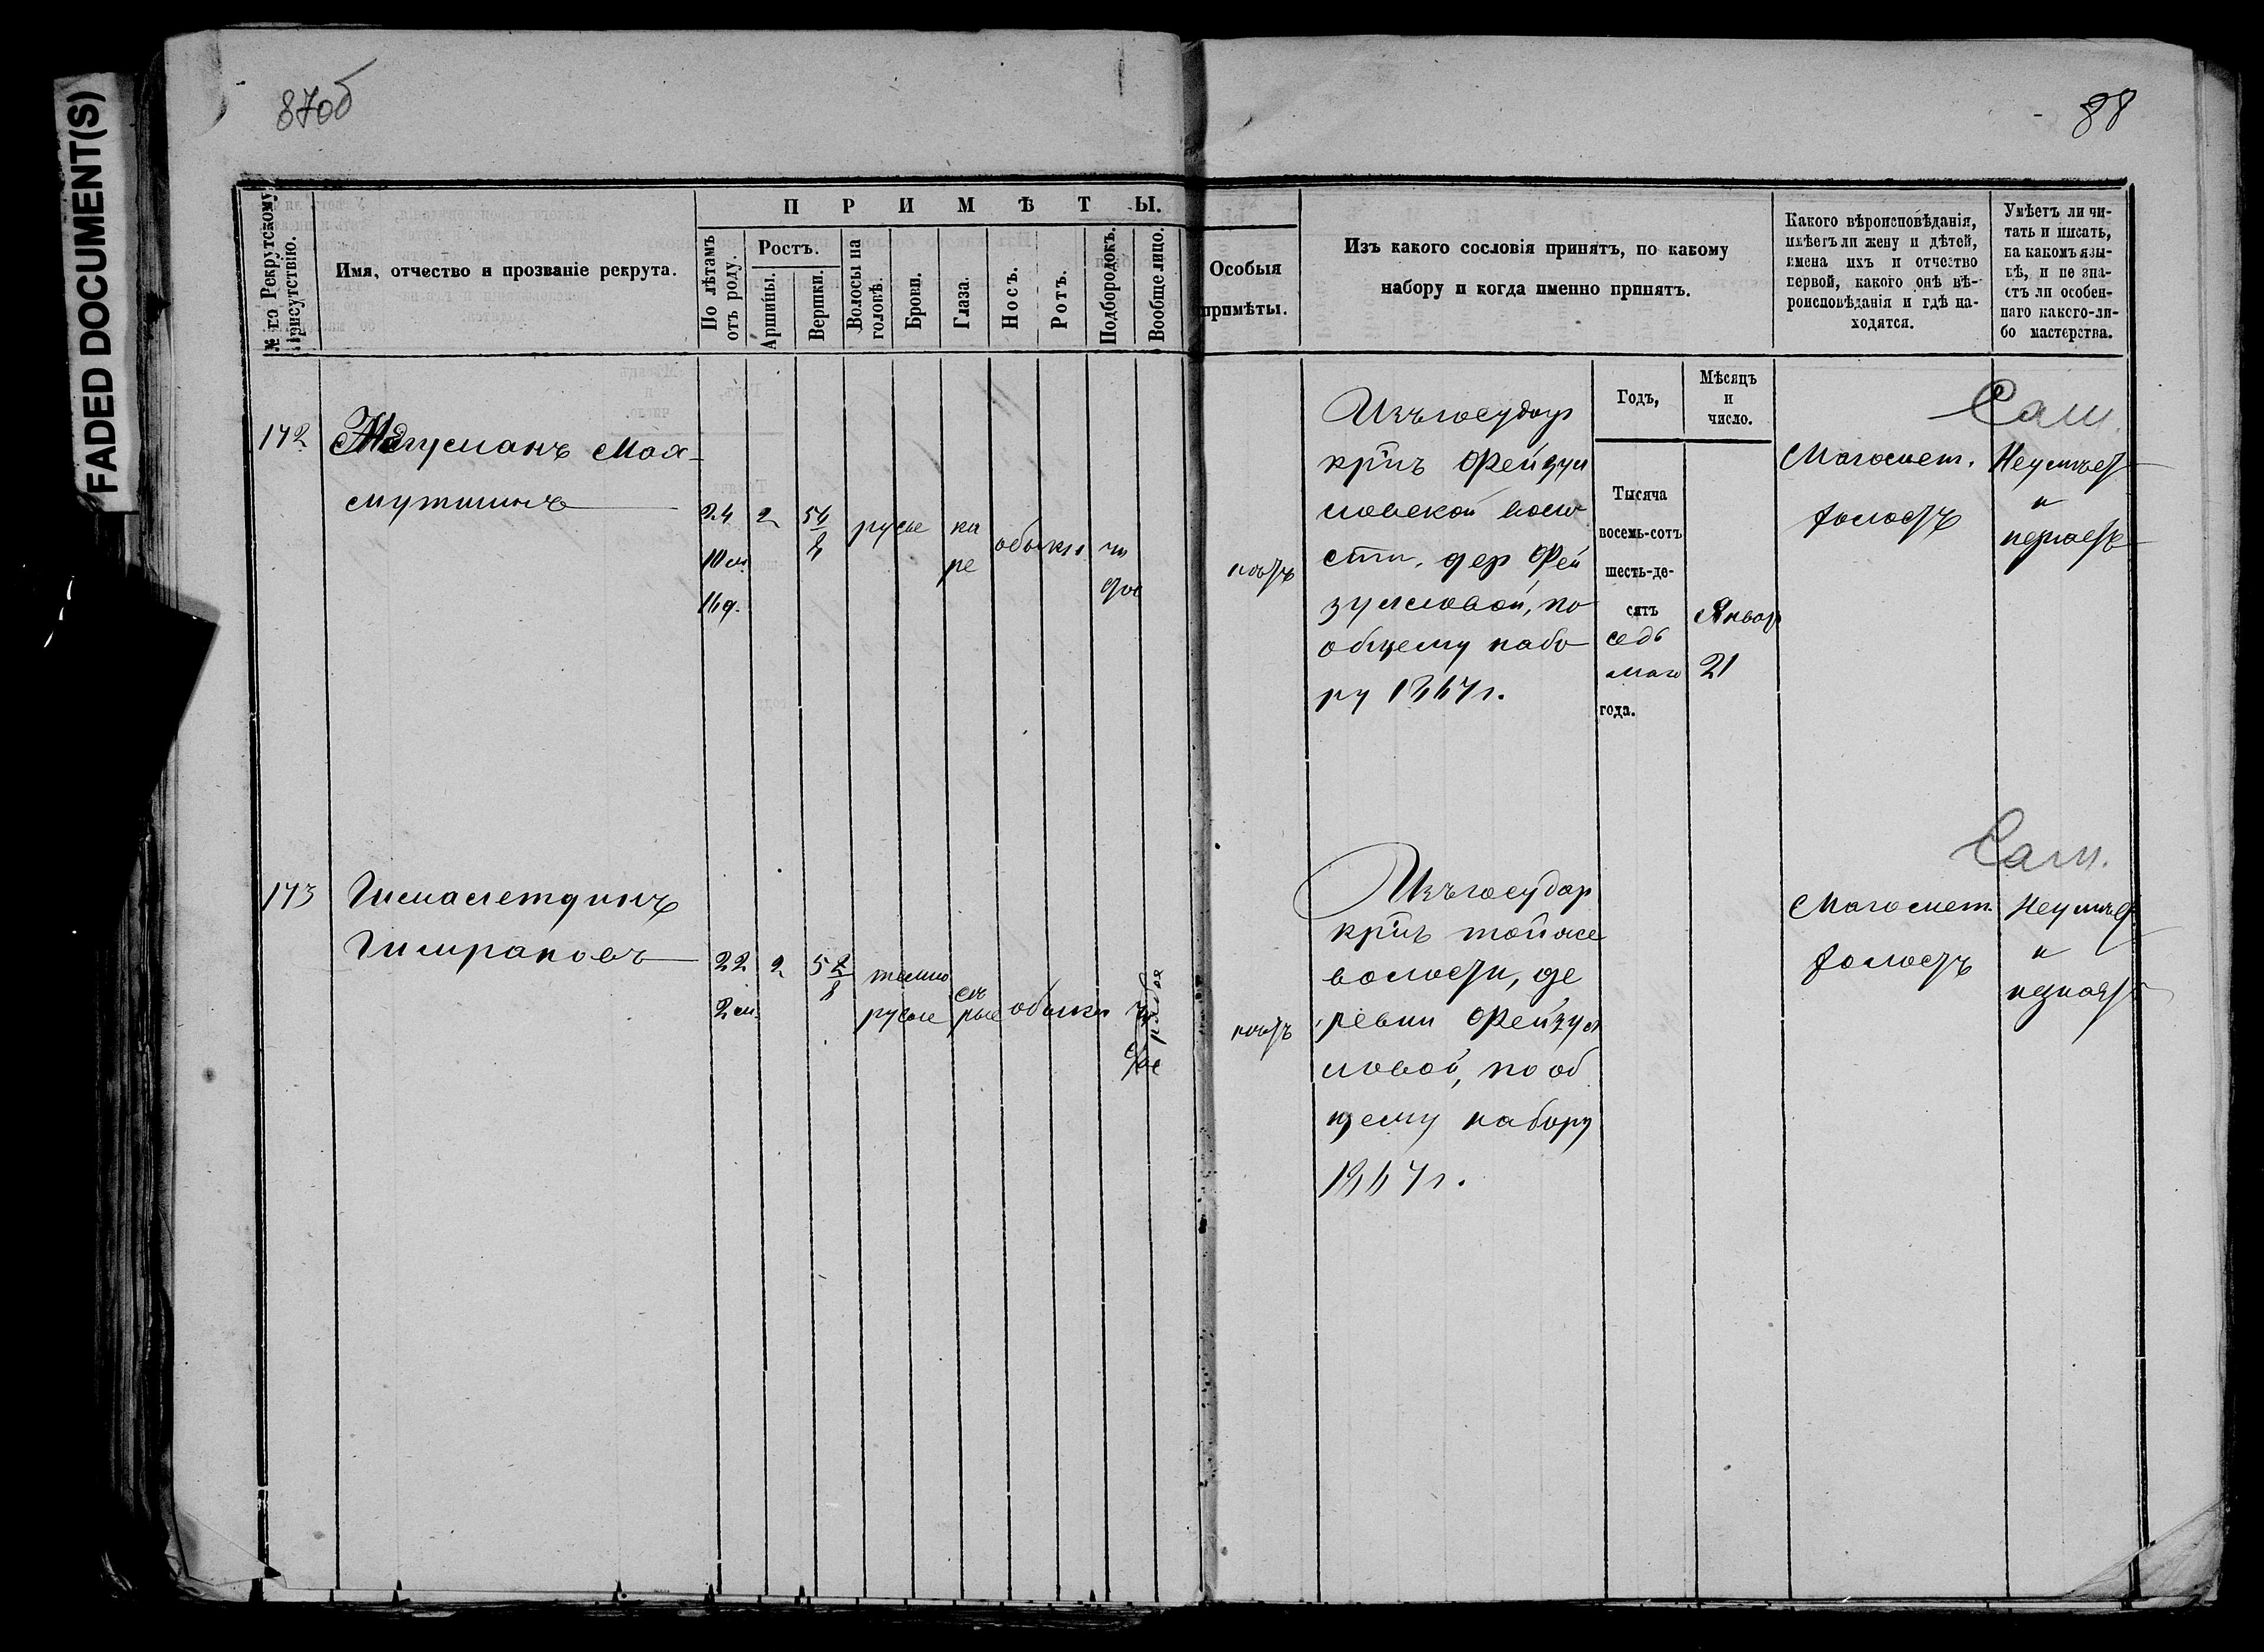 FADED DOCUMENT(S)
87об
88
№ по Рекрутскому Присутствію.
Имя, отчество и прозваніе рекрута.
ПРИМѢТЫ.
По лѣтамъ отъ роду.
Ростъ.
Аршины.
Вершки.
Волосы на головѣ.
Брови.
Глаза.
Носъ.
Ротъ.
Подбородокъ.
Вообще лицо.
Особыя
примѣты.
Изъ какого сословія принятъ, по какому
набору и когда именно принятъ.
Какого вѣроисповѣданія,
имѣетъ ли жену и дѣтей,
имена ихъ и отчество
первой, какого онѣ вѣ-
роисповѣданія и гдѣ на-
ходятся.
Умѣетъ ли чи-
тать и писать,
на какомъ язы-
кѣ, и не зна-
етъ ли особен-
наго какого-ли-
бо мастерства.
172
Мах-
мутшинъ
24
10 м.
16 д.
2
5 6/8
русые
ка
ріе
обыкн
чи
стое
нѣтъ
Изъ государ
кр̃нъ Фейзул
ловской воло
сти, дер Фей
зулловой, по
общему набо
ру 1867 г.
Годъ,
Тысяча
восемь-сотъ
шесть-де-
сятъ
седь
маго
года.
Мѣсяцъ
и
число.
Январ
21
Магомет.
холостъ
Сам.
Неумѣетъ
и
незнаетъ
173
22
2 м.
2
5 2/8
темно
русые
сѣ
рые
обыкн
чи
стое
рябоя
нѣтъ
Изъ государ
кр̃нъ той же
волости, де
ревни Фейзул
ловой, по об
щему набору
1867 г.
Магомет.
холостъ
Сам.
Неумѣетъ
и
незнаетъ